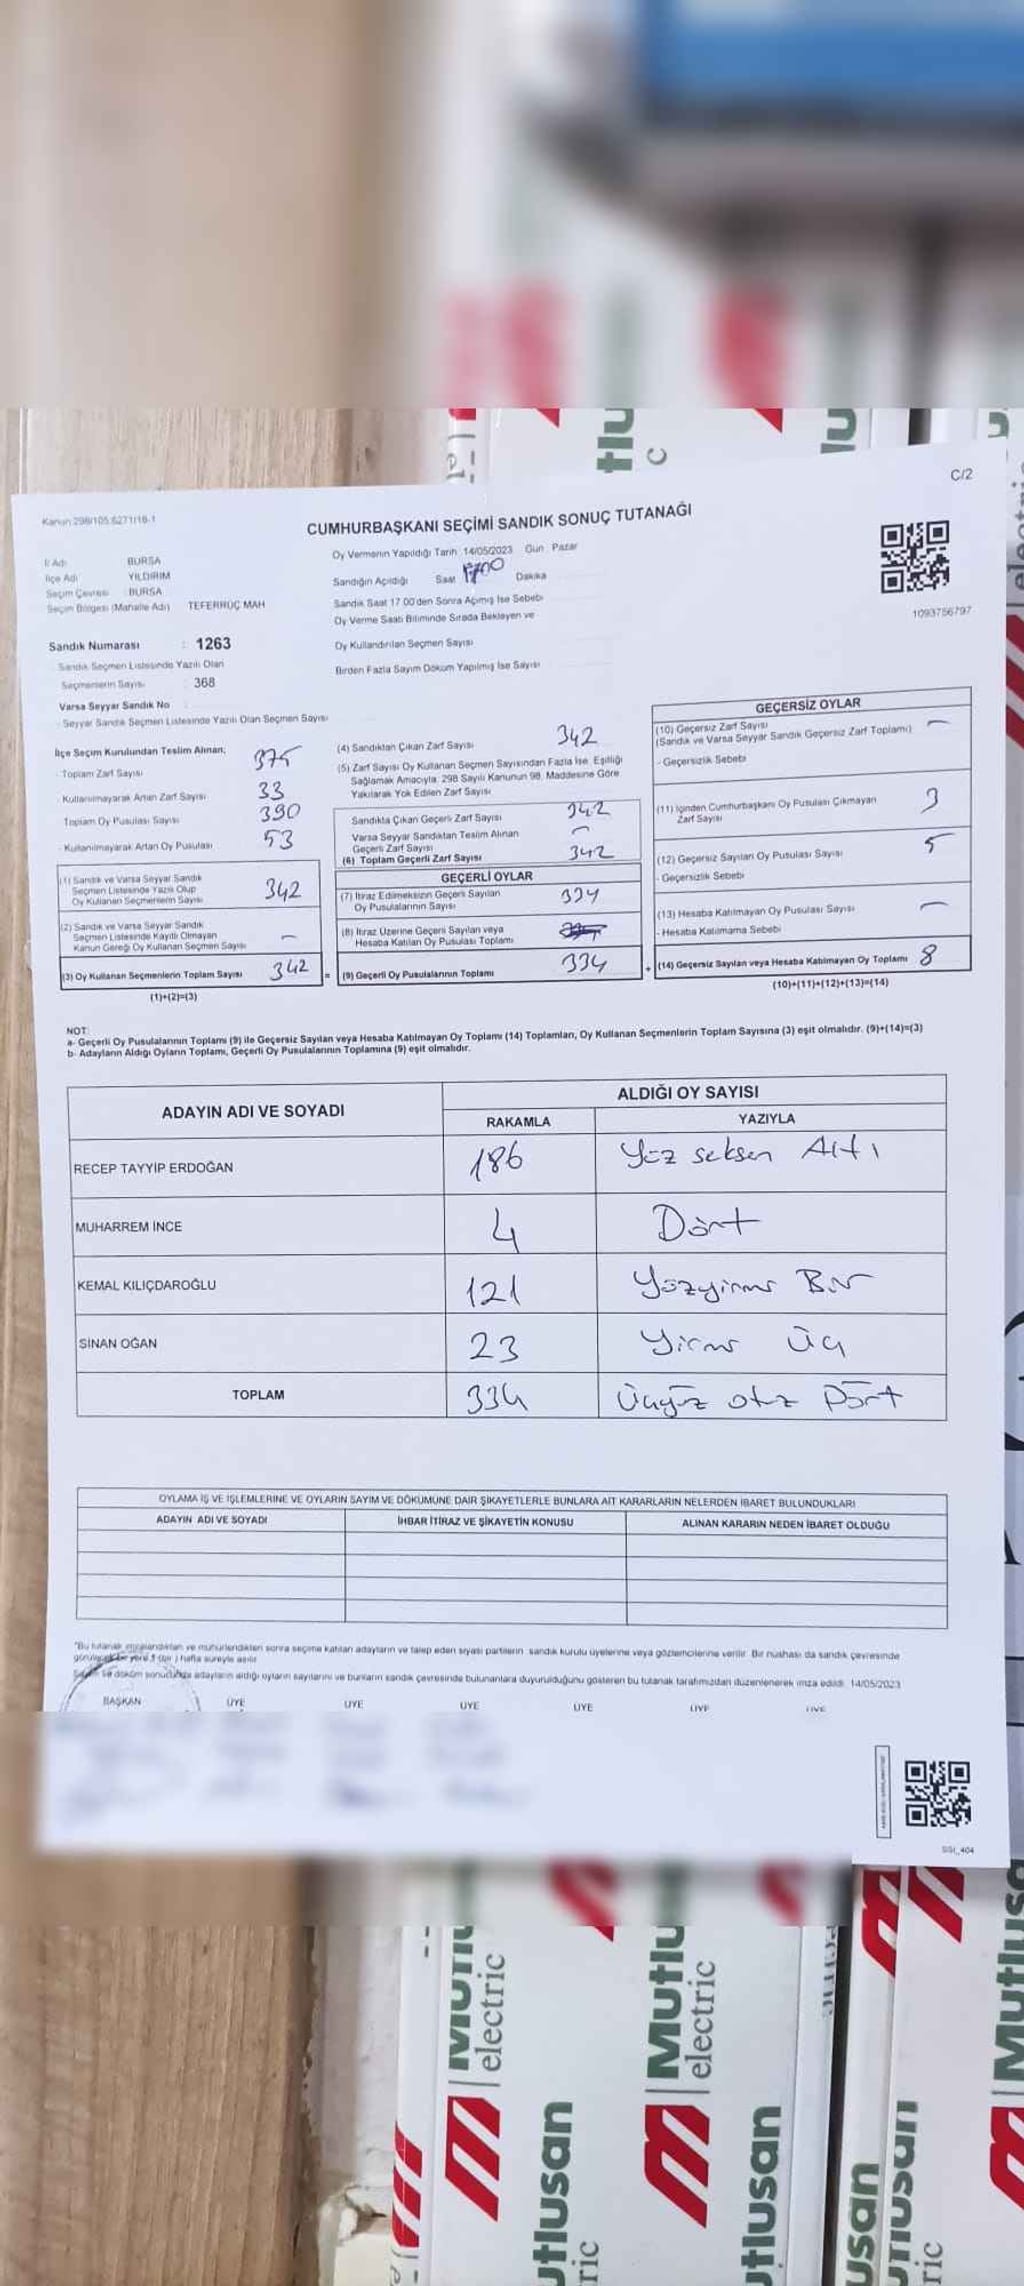 C/2
Kanun 298/105 6271/18-1
CUMHURBAŞKANI SEÇİMİ SANDIK SONUÇ TUTANAĞI
İl Adı BURSA
İlçe Adı YILDIRIM
Seçim Çevresi : BURSA
Seçim Bölgesi (Mahalle Adı) TEFERRÜÇ MAH
Oy Vermenin Yapıldığı Tarih 14/05/2023 Gün Pazar
Sandığın Açıldığı Saat 1700 Dakika
Sandık Saat 17 00'den Sonra Açımış İse Sebebi
Oy Verme Saati Bitiminde Sırada Bekleyen ve
Oy Kullandırılan Seçmen Sayısı
Birden Fazla Sayım Döküm Yapılmış İse Sayısı
1093756797
Sandık Numarası : 1263
Sandık Seçmen Listesinde Yazılı Olan
Seçmenlerin Sayısı 368
Varsa Seyyar Sandık No
- Seyyar Sandık Seçmen Listesinde Yazılı Olan Seçmen Sayısı
İlçe Seçim Kurulundan Teslim Alınan;
- Toplam Zarf Sayısı 375
- Kullanılmayarak Artan Zarf Sayısı 33
Toplam Oy Pusulası Sayısı 390
- Kullanılmayarak Artan Oy Pusulası 53
(1) Sandık ve Varsa Seyyar Sandık
Seçmen Listesinde Yazılı Olup
Oy Kullanan Seçmenlerin Sayısı 342
(2) Sandık ve Varsa Seyyar Sandık
Seçmen Listesinde Kayıtlı Olmayan
Kanun Gereği Oy Kullanan Seçmen Sayısı –
(3) Oy Kullanan Seçmenlerin Toplam Sayısı 342
(1)+(2)=(3)
(4) Sandıktan Çıkan Zarf Sayısı 342
(5) Zarf Sayısı Oy Kullanan Seçmen Sayısından Fazla İse, Eşitliği
Sağlamak Amacıyla, 298 Sayılı Kanunun 98. Maddesine Göre
Yakılarak Yok Edilen Zarf Sayısı
Sandıkta Çıkan Geçerli Zarf Sayısı 342
Varsa Seyyar Sandıktan Teslim Alınan
Geçerli Zarf Sayısı –
(6) Toplam Geçerli Zarf Sayısı 342
GEÇERLİ OYLAR
(7) İtiraz Edilmeksizin Geçerli Sayılan
Oy Pusulalarının Sayısı 334
(8) İtiraz Üzerine Geçerli Sayılan veya
Hesaba Katılan Oy Pusulası Toplamı
= (9) Geçerli Oy Pusulalarının Toplamı 334
GEÇERSİZ OYLAR
(10) Geçersiz Zarf Sayısı –
(Sandık ve Varsa Seyyar Sandık Geçersiz Zarf Toplamı)
- Geçersizlik Sebebi
(11) İçinden Cumhurbaşkanı Oy Pusulası Çıkmayan
Zarf Sayısı 3
(12) Geçersiz Sayılan Oy Pusulası Sayısı 5
- Geçersizlik Sebebi
(13) Hesaba Katılmayan Oy Pusulası Sayısı –
- Hesaba Katılmama Sebebi
+ (14) Geçersiz Sayılan veya Hesaba Katılmayan Oy Toplamı 8
(10)+(11)+(12)+(13)=(14)
NOT:
a- Geçerli Oy Pusulalarının Toplamı (9) ile Geçersiz Sayılan veya Hesaba Katılmayan Oy Toplamı (14) Toplamları, Oy Kullanan Seçmenlerin Toplam Sayısına (3) eşit olmalıdır. (9)+(14)=(3)
b- Adayların Aldığı Oyların Toplamı, Geçerli Oy Pusulalarının Toplamına (9) eşit olmalıdır.
ADAYIN ADI VE SOYADI
ALDIĞI OY SAYISI
RAKAMLA YAZIYLA
RECEP TAYYİP ERDOĞAN 186 Yüz seksen Altı
MUHARREM İNCE 4 Dört
KEMAL KILIÇDAROĞLU 121 Yüzyirmi Bir
SİNAN OĞAN 23 Yirmi Üç
TOPLAM 334 Üçyüz otuz Dört
OYLAMA İŞ VE İŞLEMLERİNE VE OYLARIN SAYIM VE DÖKÜMÜNE DAİR ŞİKAYETLERLE BUNLARA AİT KARARLARIN NELERDEN İBARET BULUNDUKLARI
ADAYIN ADI VE SOYADI İHBAR İTİRAZ VE ŞİKAYETİN KONUSU ALINAN KARARIN NEDEN İBARET OLDUĞU
*Bu tutanak imzalandıktan ve mühürlendikten sonra seçime katılan adayların ve talep eden siyasi partilerin sandık kurulu üyelerine veya gözlemcilerine verilir. Bir nüshası da sandık çevresinde
görülecek bir yere 1 (bir) hafta süreyle asılır
Sayım ve döküm sonucunda adayların aldığı oyların sayılarını ve bunların sandık çevresinde bulunanlara duyurulduğunu gösteren bu tutanak tarafımızdan düzenlenerek imza edildi. 14/05/2023
BAŞKAN ÜYE ÜYE ÜYE ÜYE ÜYE ÜYE
SSI_404
Mutlu
electric
Mutlu
electric
Mutlusan
utlusan
utlusan